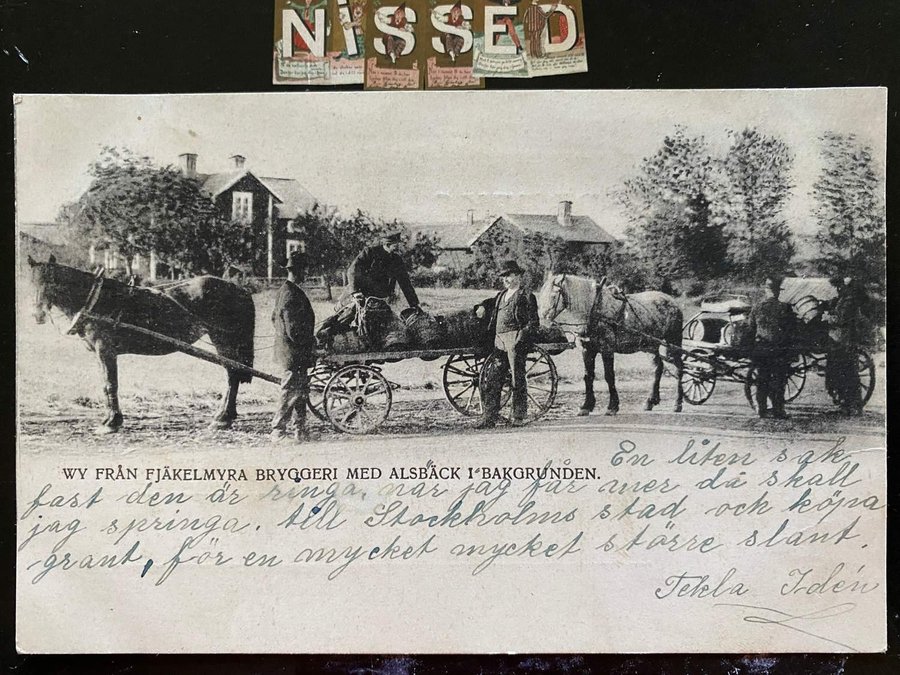 NISSED
WY FRÅN FJÄKELMYRA BRYGGERI MED ALSBÄCK I BAKGRUNDEN.
En liten sak
fast den är ringa, när jag får mer då skall
jag springa. till Stockholms stad och köpa
grant, för en mycket mycket större slant.
Tekla Idén